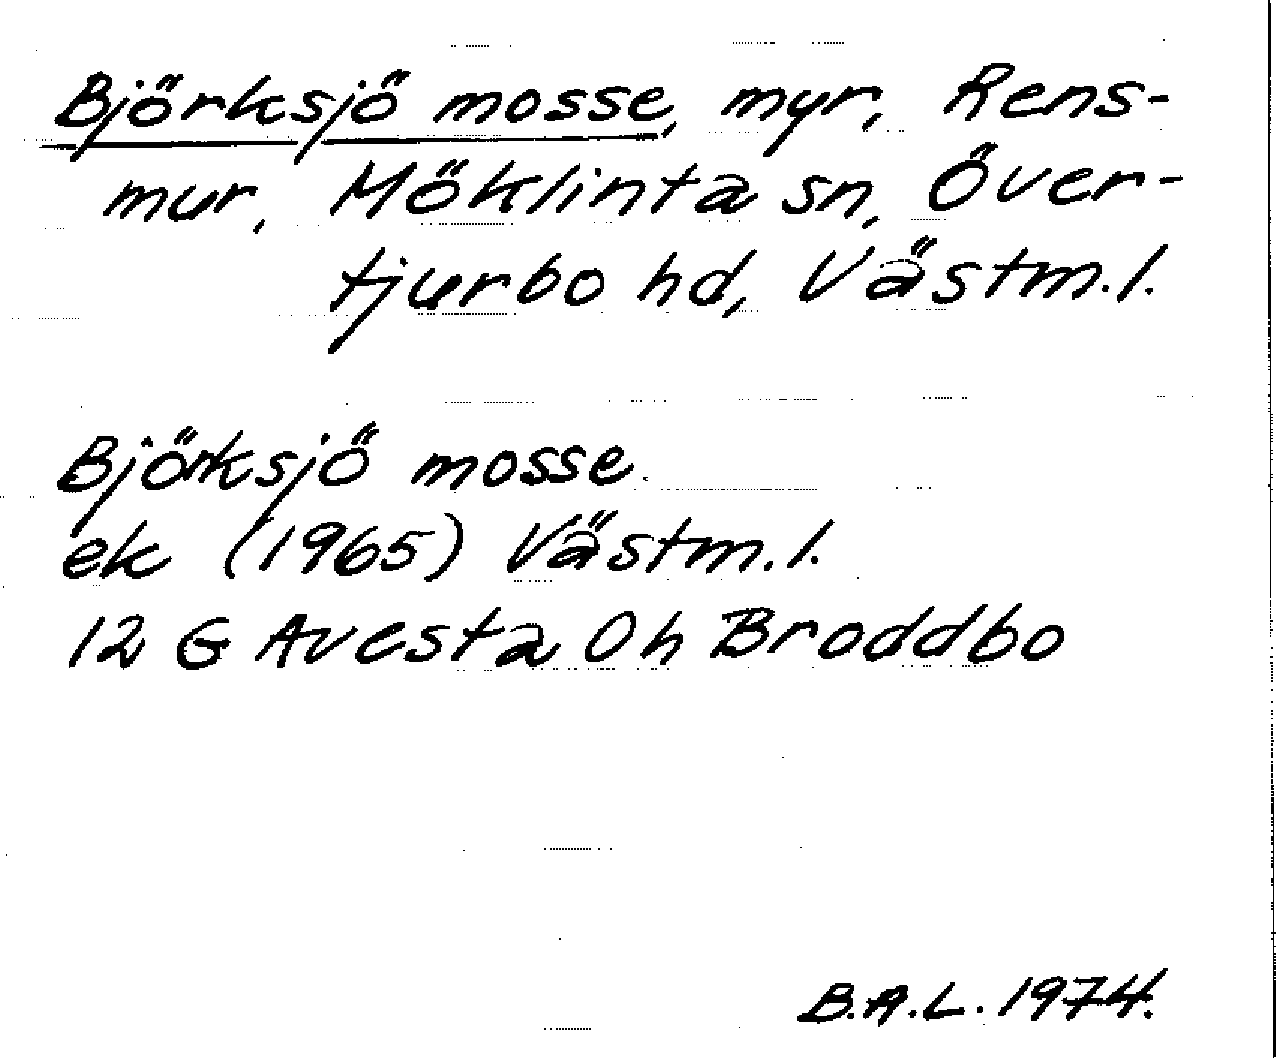 Björksjö mosse, myr, Rens-
mur, Möklinta sn, Över-
tjurbo hd, Västm.l.
Björksjö mosse.
ek (1965) Västm.l.
12 G Avesta 0h Broddbo
B.A.L. 1974.